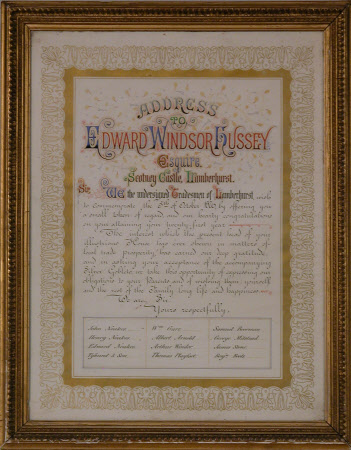 ADDRESS
TO
EDWARD WINDSOR HUSSEY
Esquire.
Scotney Castle, Lamberhurst.
Sir, We the undersigned Tradesmen of Lamberhurst wish
to commemorate the of October by offering you
a small token of regard and our hearty congratulations
on your attaining your twenty first year.
The interest which the present head of your
illustrious House has ever shewn in matters of
local trade prosperity has earned our deep gratitude
and in asking your acceptance of the accompanying
Silver Goblets we take this opportunity of expressing our
obligations to your Parents and of wishing them yourself
and the rest of the Family long life and happiness
We are, Sir,
Yours respectfully,
John Newton
Henry Newton
Edward Newton
& Son
Wm
Albert Arnold
Arthur
Thomas Playfoot
Samuel
George
James